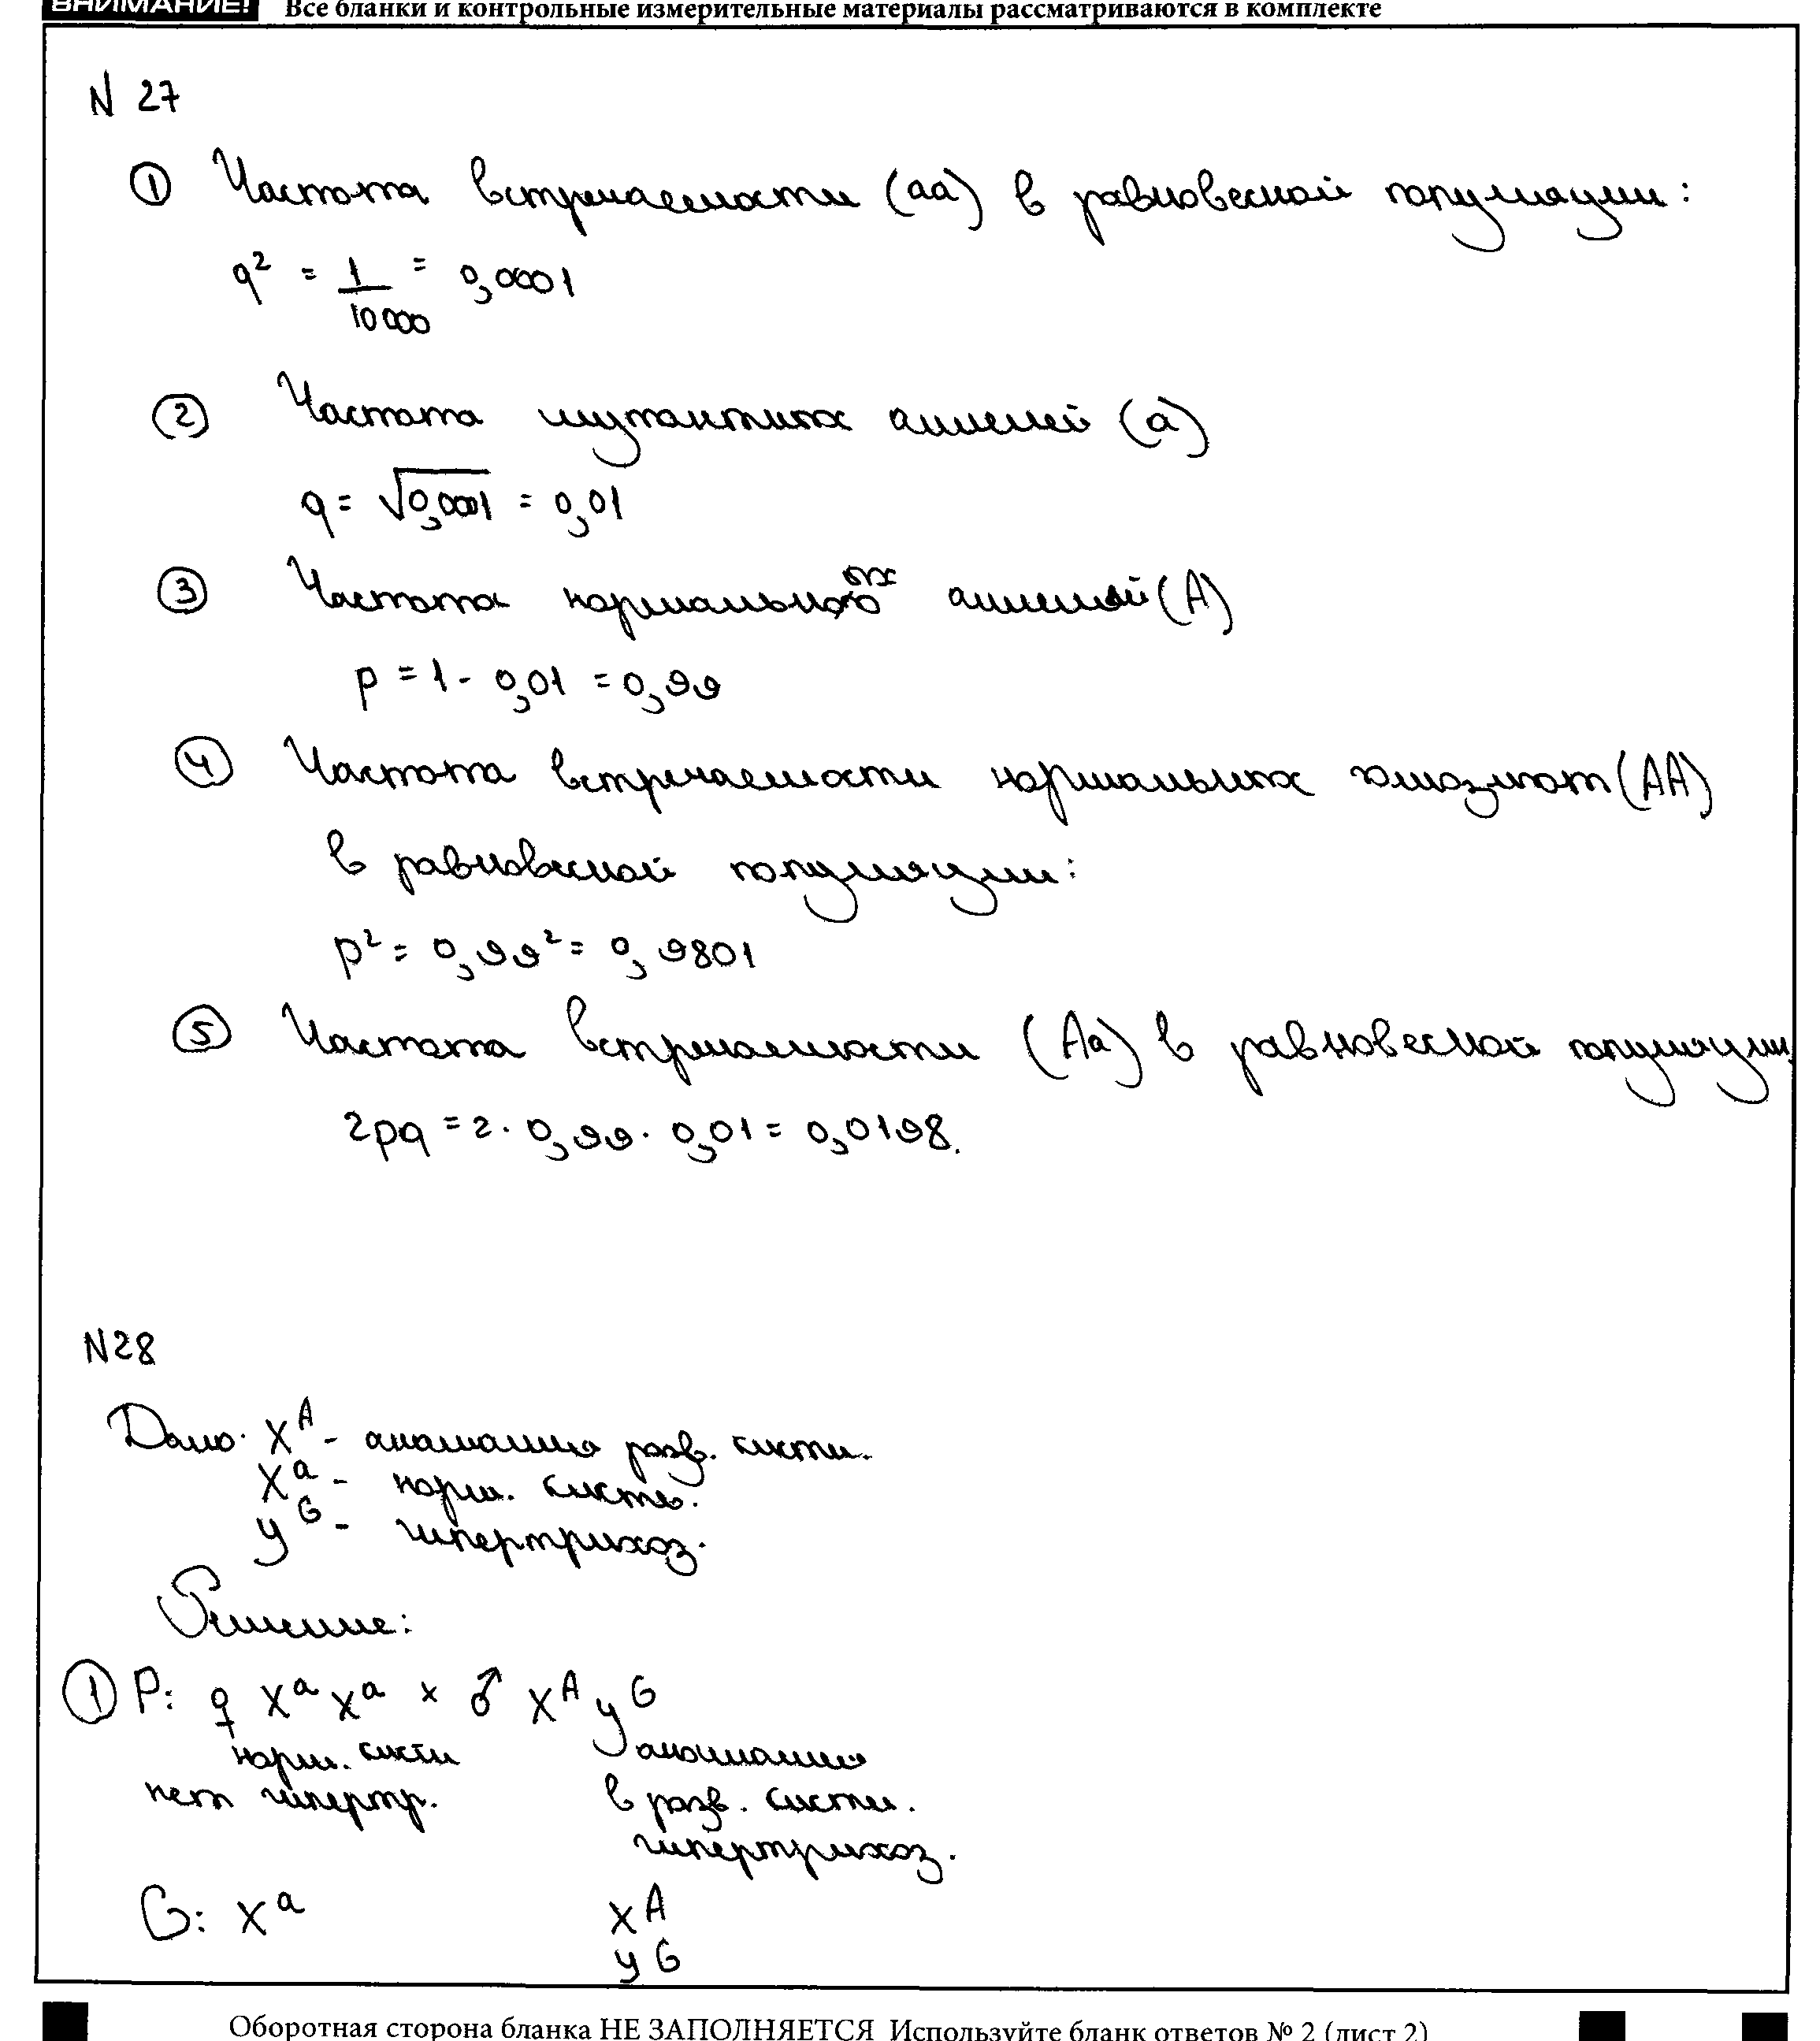 ВНИМАНИЕ! Все бланки и контрольные измерительные материалы рассматриваются в комплекте
N 27
① Частота встречаемости (aa) в равновесной популяции:
q² = 1/10000 = 0,0001
② Частота мутантных аллелей (a)
q = √0,0001 = 0,01
③ Частота нормальных аллелей (A)
p = 1 - 0,01 = 0,99
④ Частота встречаемости нормальных гомозигот (AA)
в равновесной популяции:
p² = 0,99² = 0,9801
⑤ Частота встречаемости (Aa) в равновесной популяции
2pq = 2 · 0,99 · 0,01 = 0,0198.
N28
Дано: X^A - аномалия разв. кисти.
X^a - норм. кисть.
y^G - гипертрихоз.
Решение:
① P: ♀ X^a X^a × ♂ X^A y^G
норм. кисти аномалия
нет гипертр. в разв. кисти.
гипертрихоз.
G: X^a X^A
y^G
Оборотная сторона бланка НЕ ЗАПОЛНЯЕТСЯ Используйте бланк ответов № 2 (лист 2)